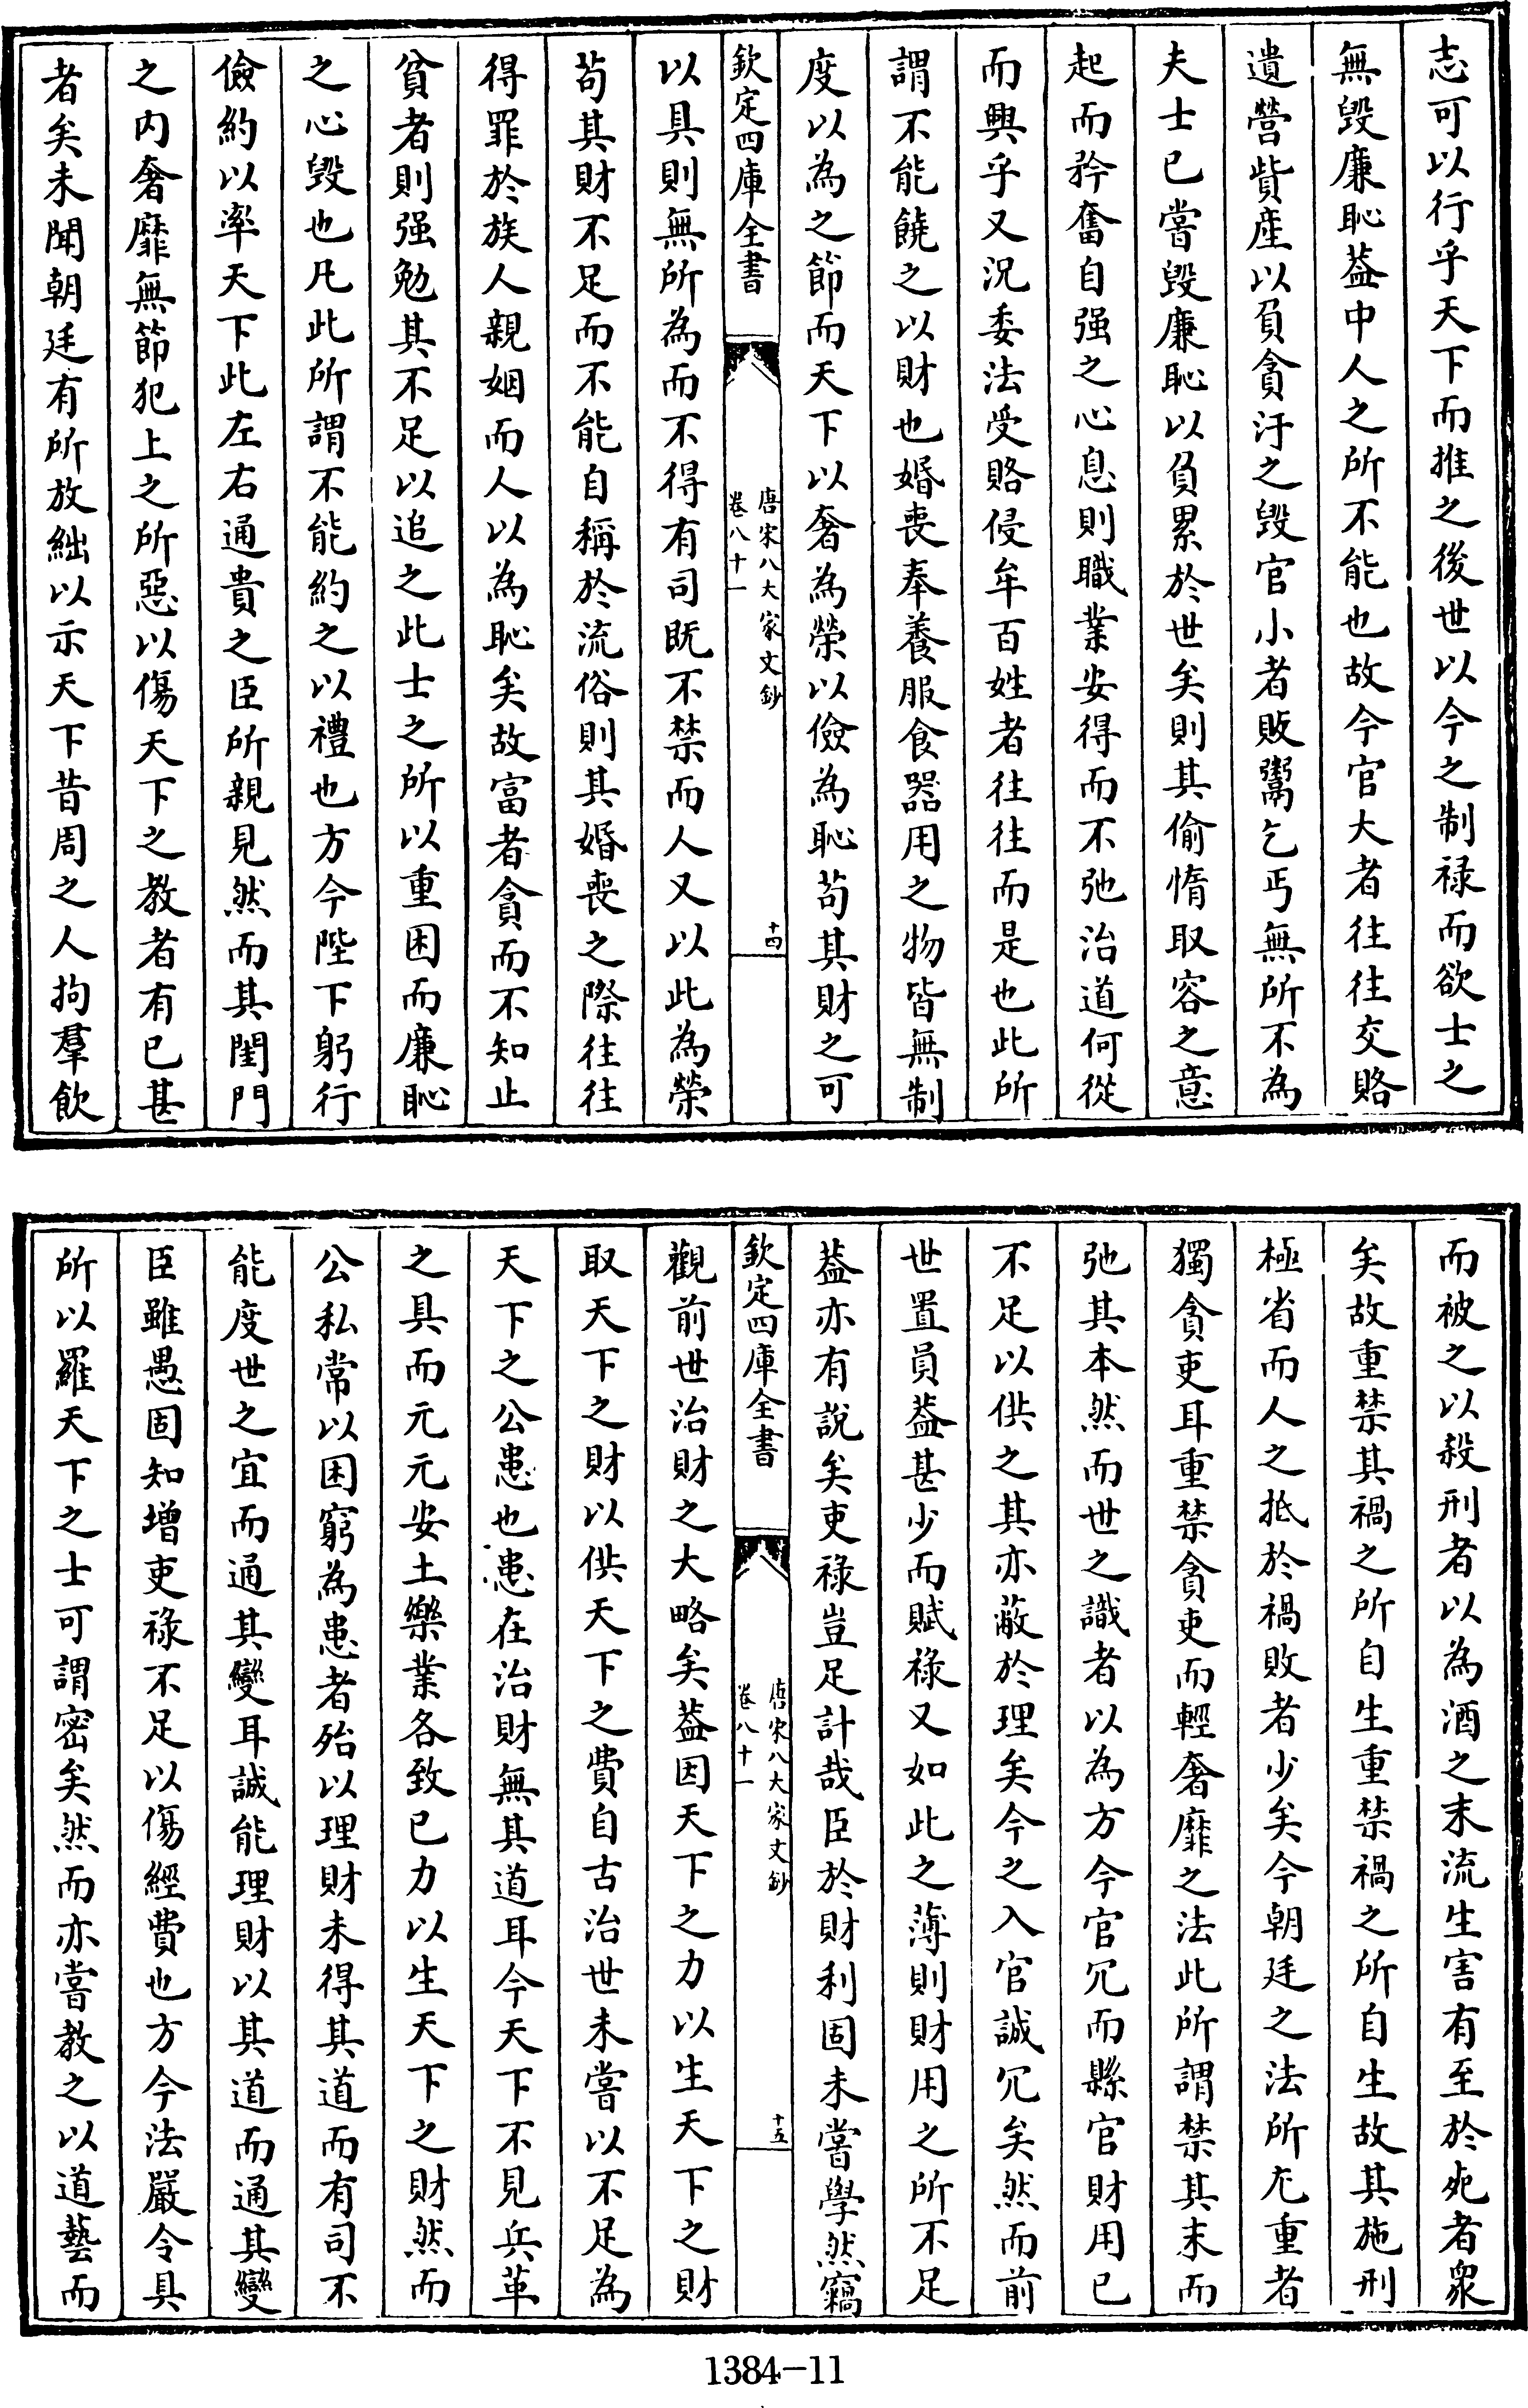 志可以行乎天下而推之後世以今之制禄而欲士之
無毀廉恥葢中人之所不能也故今官大者往往交賂
遺營貲產以負貪汙之毀官小者販鬻乞丐無所不為
夫士已嘗毀廉恥以負累於世矣則其偷惰取容之意
起而矜奮自强之心息則職業安得而不弛治道何從
而興乎又況委法受賂侵牟百姓者往往而是也此所
謂不能饒之以財也婚喪奉養服食器用之物皆無制
度以為之節而天下以奢為榮以儉為恥苟其財之可
欽定四庫全書
唐宋八大家文鈔
卷八十一
十四
以具則無所為而不得有司既不禁而人又以此為榮
苟其財不足而不能自稱於流俗則其婚喪之際往往
得罪於族人親姻而人以為恥矣故富者貪而不知止
貧者則强勉其不足以追之此士之所以重困而廉恥
之心毀也凡此所謂不能約之以禮也方今陛下躬行
儉約以率天下此左右通貴之臣所親見然而其閨門
之内奢靡無節犯上之所惡以傷天下之教者有已甚
者矣未聞朝廷有所放絀以示天下昔周之人拘羣飲
而被之以殺刑者以為酒之末流生害有至於死者衆
矣故重禁其禍之所自生重禁禍之所自生故其施刑
極省而人之抵於禍敗者少矣今朝廷之法所尤重者
獨貪吏耳重禁貪吏而輕奢靡之法此所謂禁其末而
弛其本然而世之識者以為方今官冗而縣官財用已
不足以供之其亦蔽於理矣今之入官誠冗矣然而前
世置員葢甚少而賦禄又如此之薄則財用之所不足
葢亦有說矣吏禄豈足計哉臣於財利固未嘗學然竊
欽定四庫全書
唐宋八大家文鈔
卷八十一
十五
觀前世治財之大略矣葢因天下之力以生天下之財
取天下之財以供天下之費自古治世未嘗以不足為
天下之公患也患在治財無其道耳今天下不見兵革
之具而元元安土樂業各致已力以生天下之財然而
公私常以困窮為患者殆以理財未得其道而有司不
能度世之宜而通其變耳誠能理財以其道而通其變
臣雖愚固知增吏禄不足以傷經費也方今法嚴令具
所以羅天下之士可謂密矣然而亦嘗教之以道藝而
1384-11